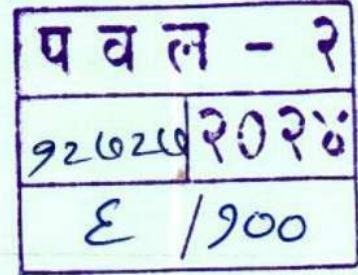 प व ल - २
१२७२७ २०२४
६ /१००